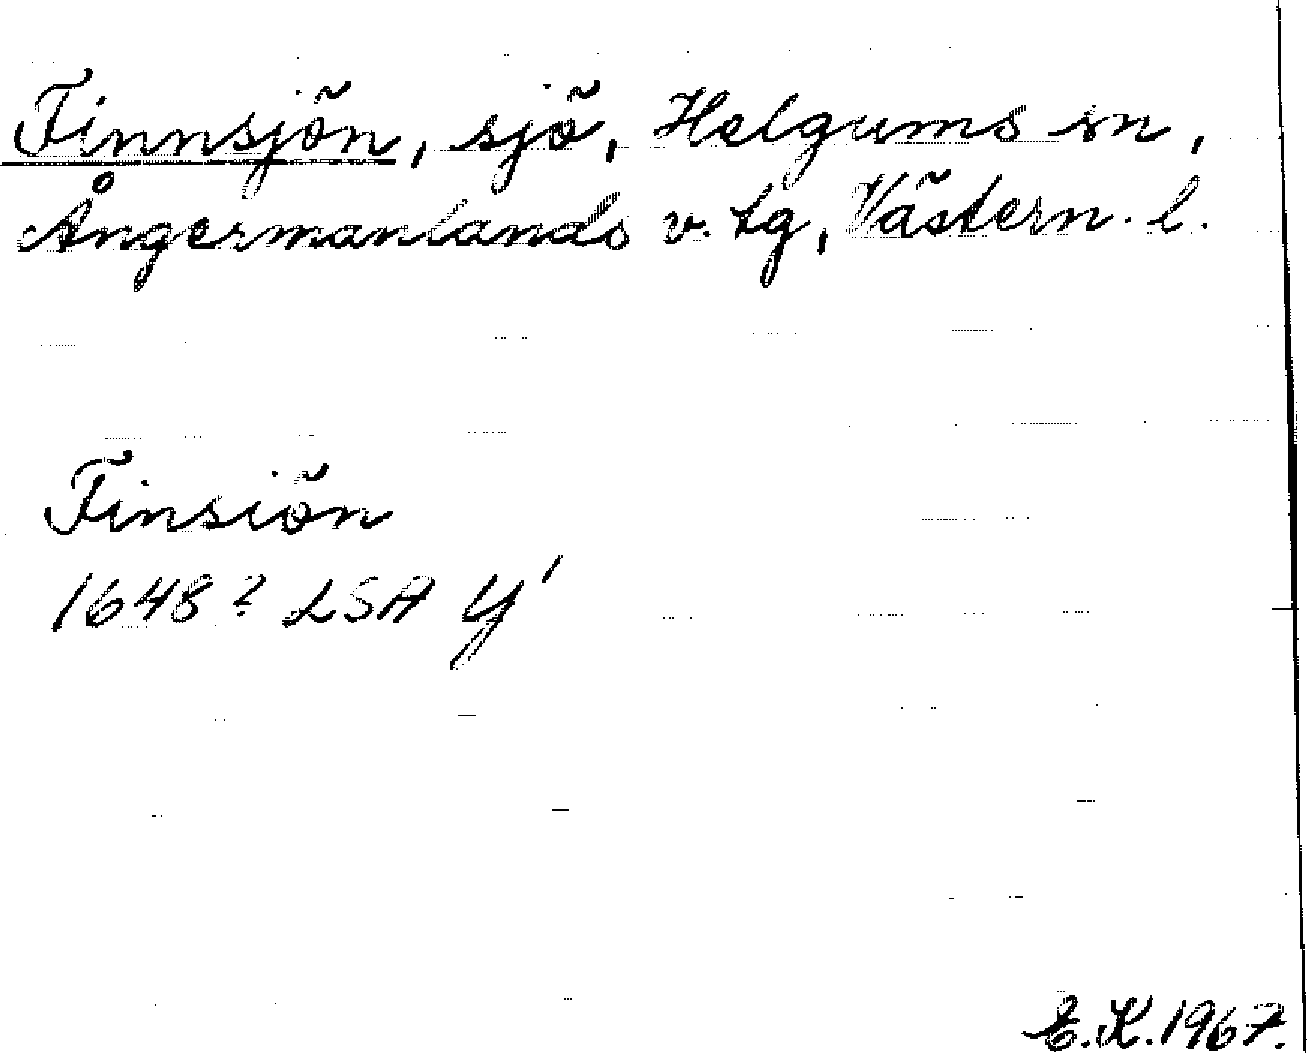 Finnsjön, sjö, Helgums sn,
Ångermanlands v. tg, Västern. l.
Finsiön
1648? LSA Y'
E.K. 1967.